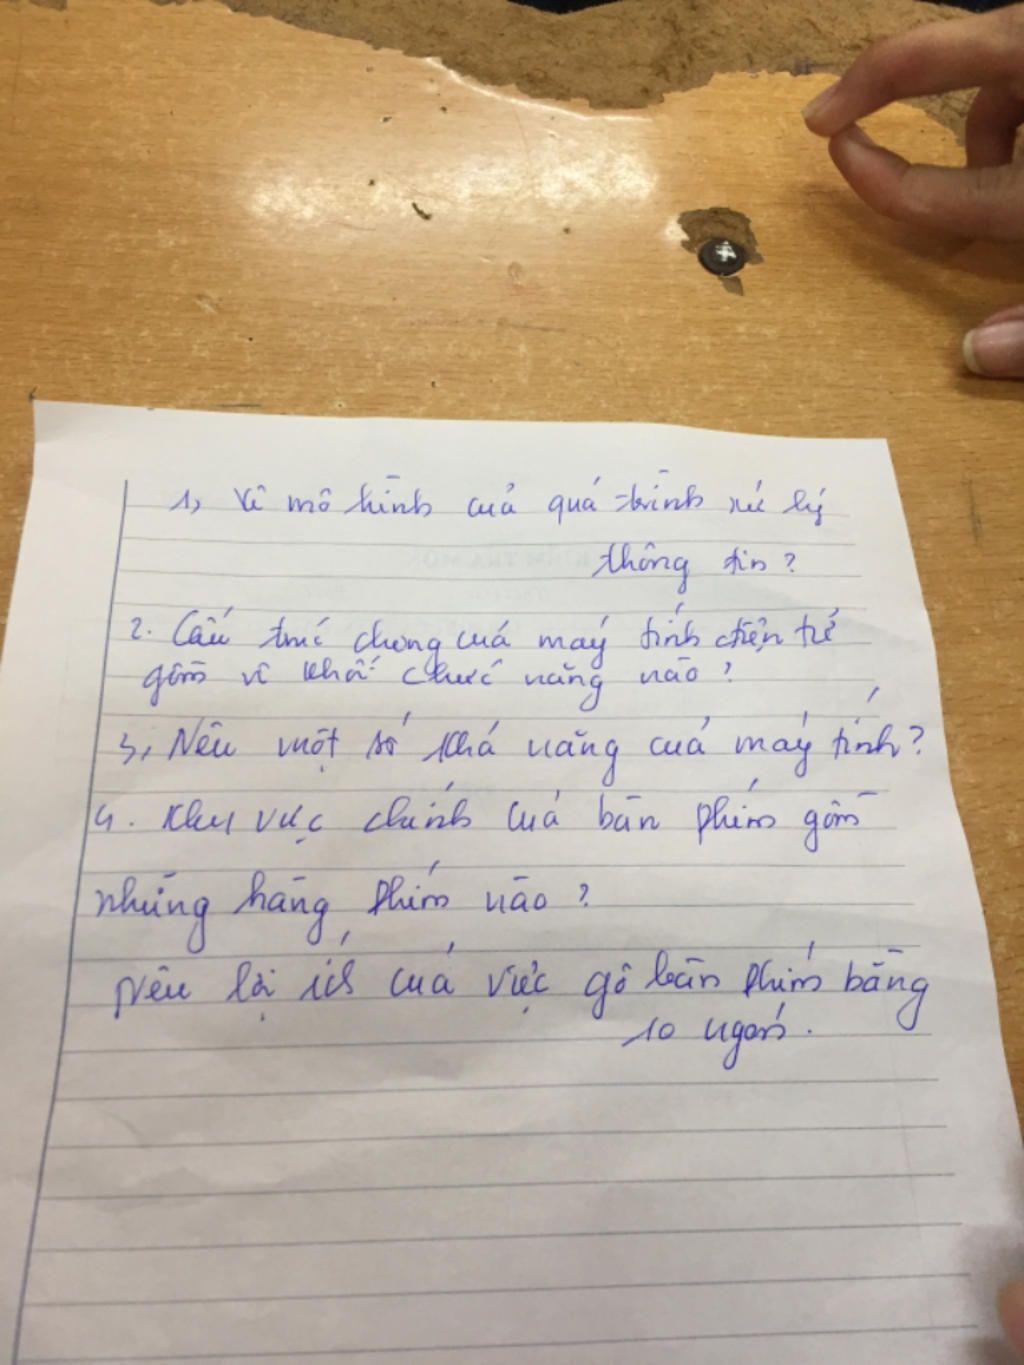 1, Vẽ mô hình của quá trình xử lý
thông tin?
2. Cấu trúc chung của máy tính điện tử
gồm khối chức năng nào?
3, Nêu một số khả năng của máy tính?
4. Khu vực chính của bàn phím gồm
những hàng phím nào?
Nêu lợi ích của việc gõ bàn phím bằng
10 ngón.